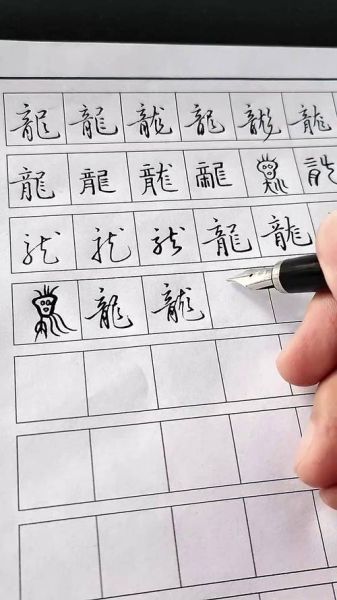 龍 龍 龍 龍 龍 龍
龍 龍 龍 龍
龍 龍 龍 龍 龍
龍 龍